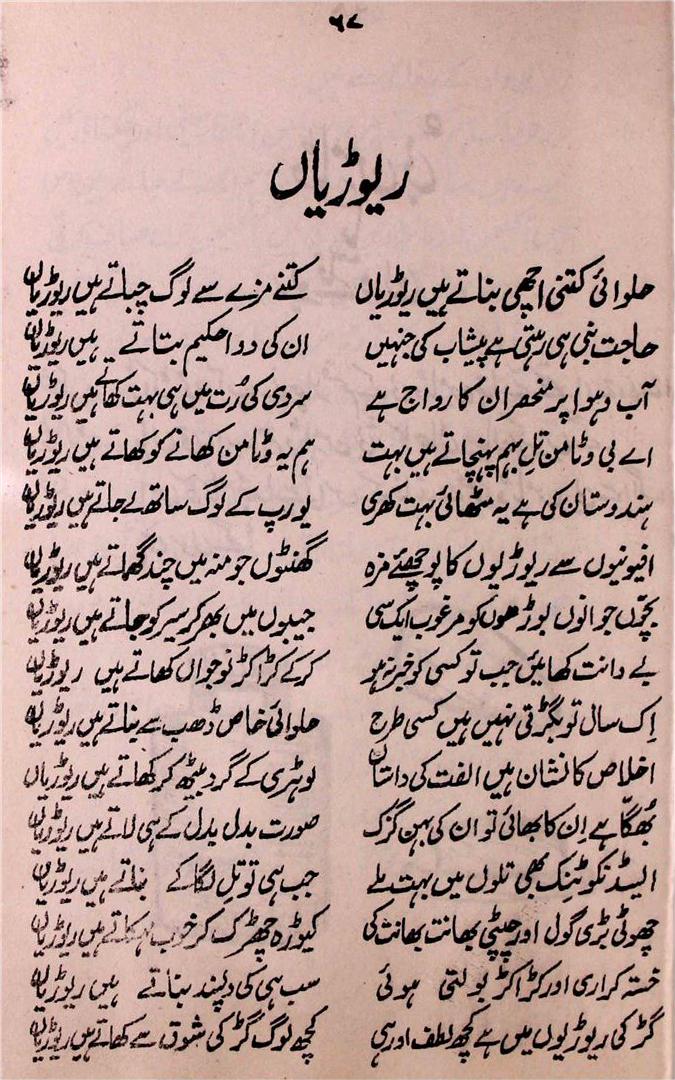 ۶۷
ریوڑیاں
حلوائی کتنی اچھی بناتے ہیں ریوڑیاں کتنے مزے سے لوگ چباتے ہیں ریوڑیاں
حاجت بنی ہی رہتی ہے پیشاب کی جنہیں ان کی دوا حکیم بتاتے ہیں ریوڑیاں
آب و ہوا پر منحصر ان کا رواج ہے سردی کی رُت میں ہی بہت کھاتے ہیں ریوڑیاں
اے بی وٹامن تِل بہم پہنچاتے ہیں بہت ہم یہ وٹامن کھانے کو کھاتے ہیں ریوڑیاں
ہندوستان کی ہے یہ مٹھائی بہت کھری یورپ کے لوگ ساتھ لے جاتے ہیں ریوڑیاں
افیونیوں سے ریوڑیوں کا پوچھئے مزہ گھنٹوں جو منہ میں چند گھماتے ہیں ریوڑیاں
بچّوں جوانوں بوڑھوں کو مرغوب ایک سی جیبوں میں بھر کر سیر کو جاتے ہیں ریوڑیاں
بے دانت کھائیں جب تو کسی کو خبر نہ ہو کر کے کڑاکڑ نوجواں کھاتے ہیں ریوڑیاں
اِک سال تو بگڑتی نہیں ہیں کسی طرح حلوائی خاص ڈھب سے بناتے ہیں ریوڑیاں
اخلاص کا نشان ہیں الفت کی داستاں لوہڑی کے گرد بیٹھ کر کھاتے ہیں ریوڑیاں
بُھگّا ہے اِن کا بھائی تو ان کی بہن گزک صورت بدل بدل کے ہی لاتے ہیں ریوڑیاں
ایسڈ نکوٹینک بھی تلوں میں بہت ملے جب ہی تو تِل لگا کے بناتے ہیں ریوڑیاں
چھوٹی بڑی گول اور چپٹی بھانت بھانت کی کیوڑہ چھڑک کر خوب مہکاتے ہیں ریوڑیاں
خستہ کراری اور کڑاکڑ بولتی ہوئی سب ہی کی دلپسند بناتے ہیں ریوڑیاں
گڑ کی ریوڑیوں میں ہے کچھ لطف اور ہی کچھ لوگ گڑ کی شوق سے کھاتے ہیں ریوڑیاں